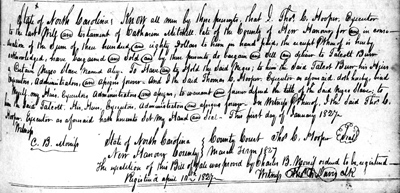 State of North Carolina. Know all men by these presents, that I Thos. C. Hooper, Executor
to the last Will and testament of Catharine Mitchell late of the County of New Hanover, for and in consi-
deration of the sum of three hundred and eighty Dollars to him in hand paid, the receipt whereof is hereby
acknowledged, have bargained and sold and by these presents do bargain and sell and deliver to Talcott Burr
a Certain Negro Slave Named To Have and to Hold the said Negro to him the said Talcott Burr his Heirs
Executors Administrators and assigns forever. And I the said Thomas C. Hooper Executor as aforesaid doth hereby, bind
my Heirs, Executors Administrators and assigns, to warrant and forever defend the title of the said Negro Slave, to
him the said Talcott, His Heirs, Executors, Administrators and assigns forever. In Witness Whereof, I the said Thos. C.
Hooper, Executor as aforesaid hath hereunto Set my Hand and Seal. This the first day of January 1827.
Witness
C. B. Morris Thos C. Hooper Seal
State of North Carolina
New Hanover County County Court
March Term 1827
The execution of this Bill of Sale was proved by Charles B. Morris ordered to be registered
Registered april 10th 1827. Witness Davis Clk